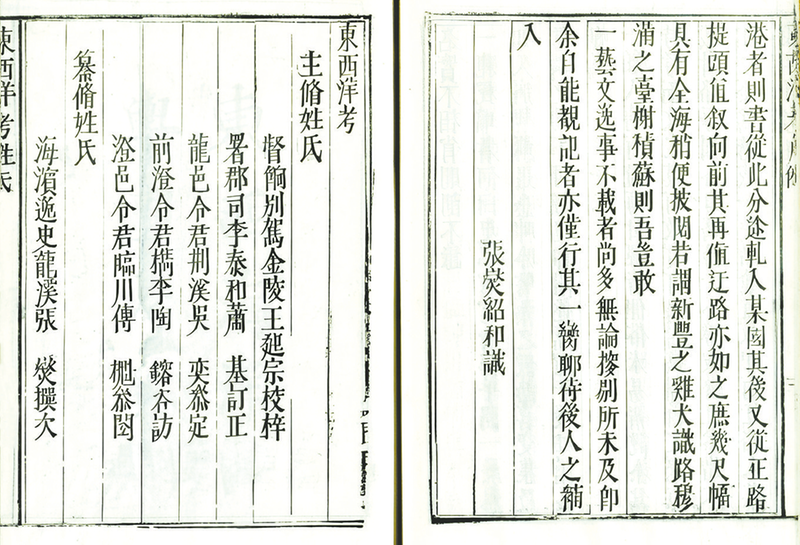 港者則書從此分途軋入某國其後又從正路
提頭直叙向前其再值迂路亦如之庶幾尺幅
具有全海稍便披閱若謂新豐之雞犬識路穆
滿之臺榭積蘇則吾豈敢
一藝文逸事不載者尚多無論撥剔所未及即
余自能覩記者亦僅行其一臠聊待後人之補
入
張燮紹和識
東西洋考
主脩姓氏
督餉別駕金陵王起宗校梓
署郡司李泰和蕭 基訂正
龍邑令君荆溪吳 奕叅定
前澄令君檇李陶 鎔咨訪
澄邑令君臨川傳 櫆叅閱
纂脩姓氏
海濱逸史龍溪張 燮撰次
東西洋考姓氏